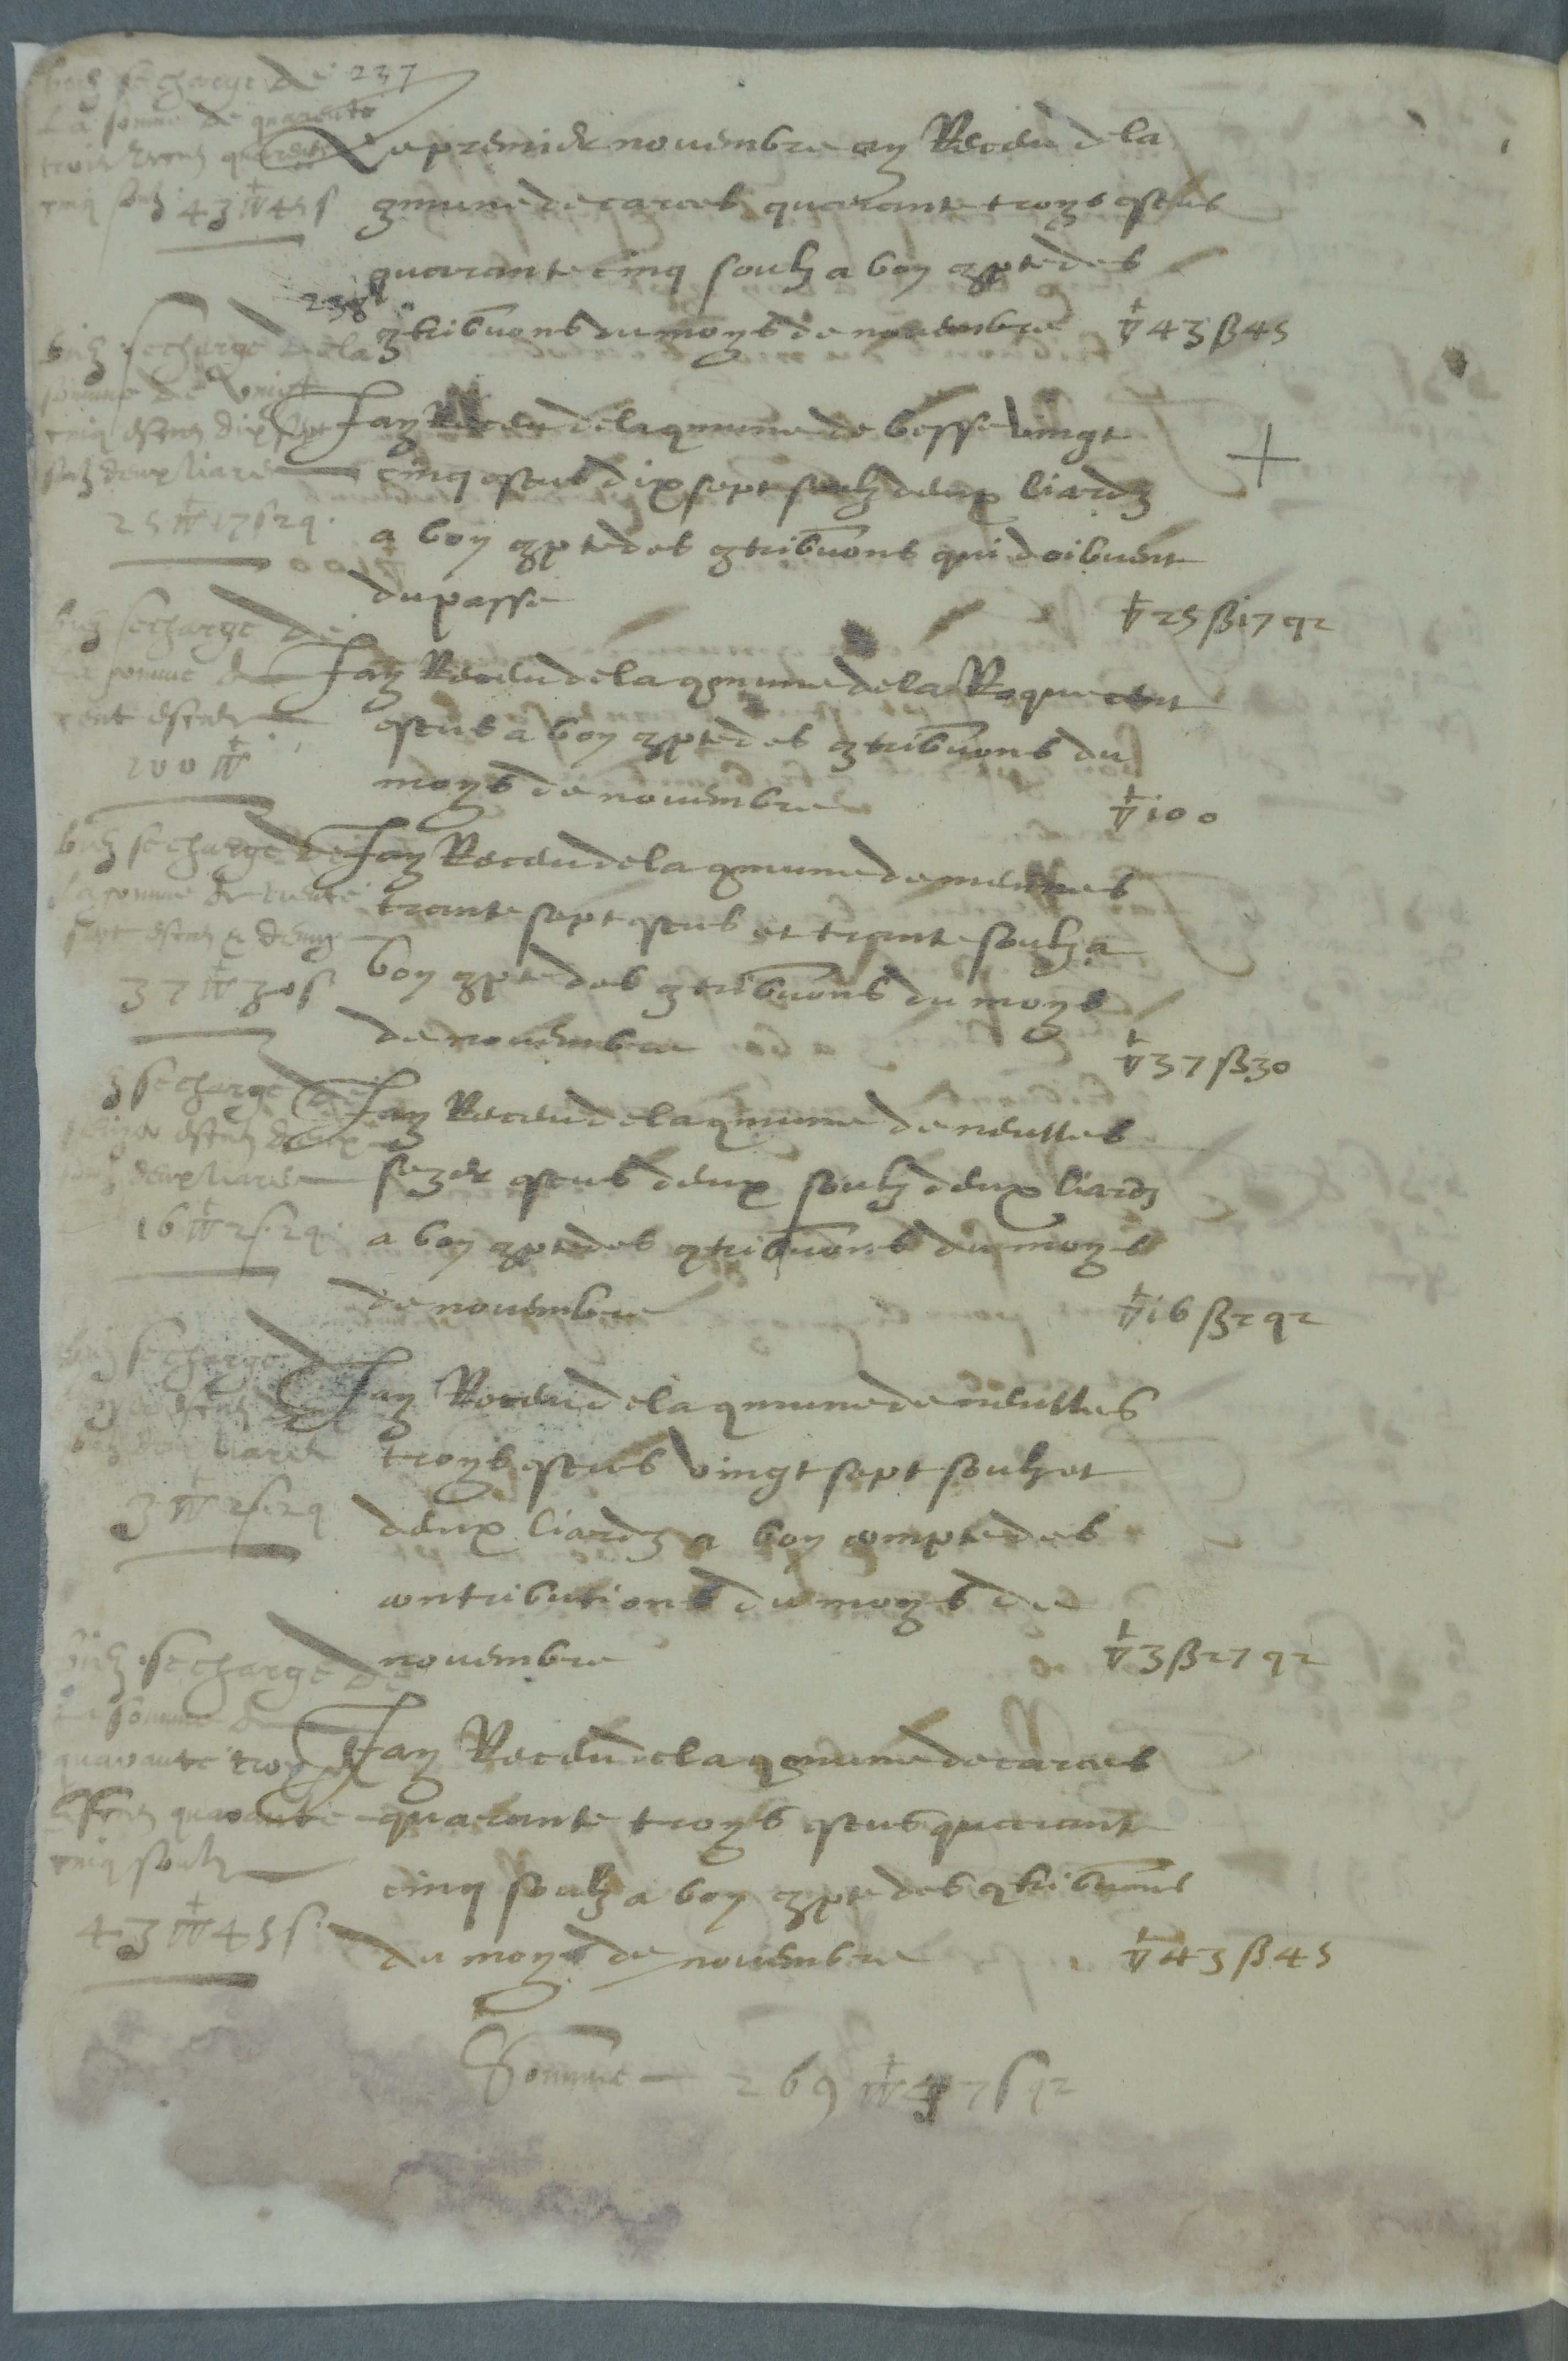 se charge de 237
La somme de quarante
trois escus quarante
cinq soulz 43 ∇ 45 s
Le premier novembre ay Receu de la
qmune de carces quarante troys escus
quarante cinq soulz a bon qpte des
qtribuons du moys de novembre ∇ 43 ß 45
238
se charge de la
somme de vingt
cinq escus dix sept
solz deux liards
25 ∇ 17 s 2 q
Jay Receu de la qmune de besse vingt
cinq escus dix sept soulz deux liardz
a bon qpte des qtribuons qui doibuent
du passe ∇ 25 ß 17 q 2
se charge de
La somme de
cent escus
100 ∇
Jay Receu de la qmune de la Roque cent
escus a bon qpte des qtribuons du
moys de novembre ∇ 100
se charge de
la somme de trente
sept escus & demy
37 ∇ 30 s
Jay Receu de la qmune de meulhes
trante sept escus et trante soulz a
bon qpte des qtribuons du moys
de novembre ∇ 37 ß 30
se charge de
seize escus deux
deux liards
16 ∇ 2 s 2 q
Jay Receu de la qmune de neulles
sezer escus deux soulz deux liardz
a bon qpte des qtribuons du moys
de novembre ∇ 16 ß 2 q 2
se charge
deux liards
3 ∇ 2 s 2 q
Jay Receu de la qmune de neulles
troys escus vingt sept soulz et
deux liardz a bon compte des
contributions du moys de
novembre ∇ 3 ß 27 q 2
se charge de
La somme de
quarante troys
Escus quarante
cinq soulz
43 ∇ 45 s
Jay Receu de la qmune de carces
quarante troys escus quarant
cinq soulz a bon qpte des qtribuons
du moys de novembre ∇ 43 ß 45
Somme 269 ∇ 47 s q 2